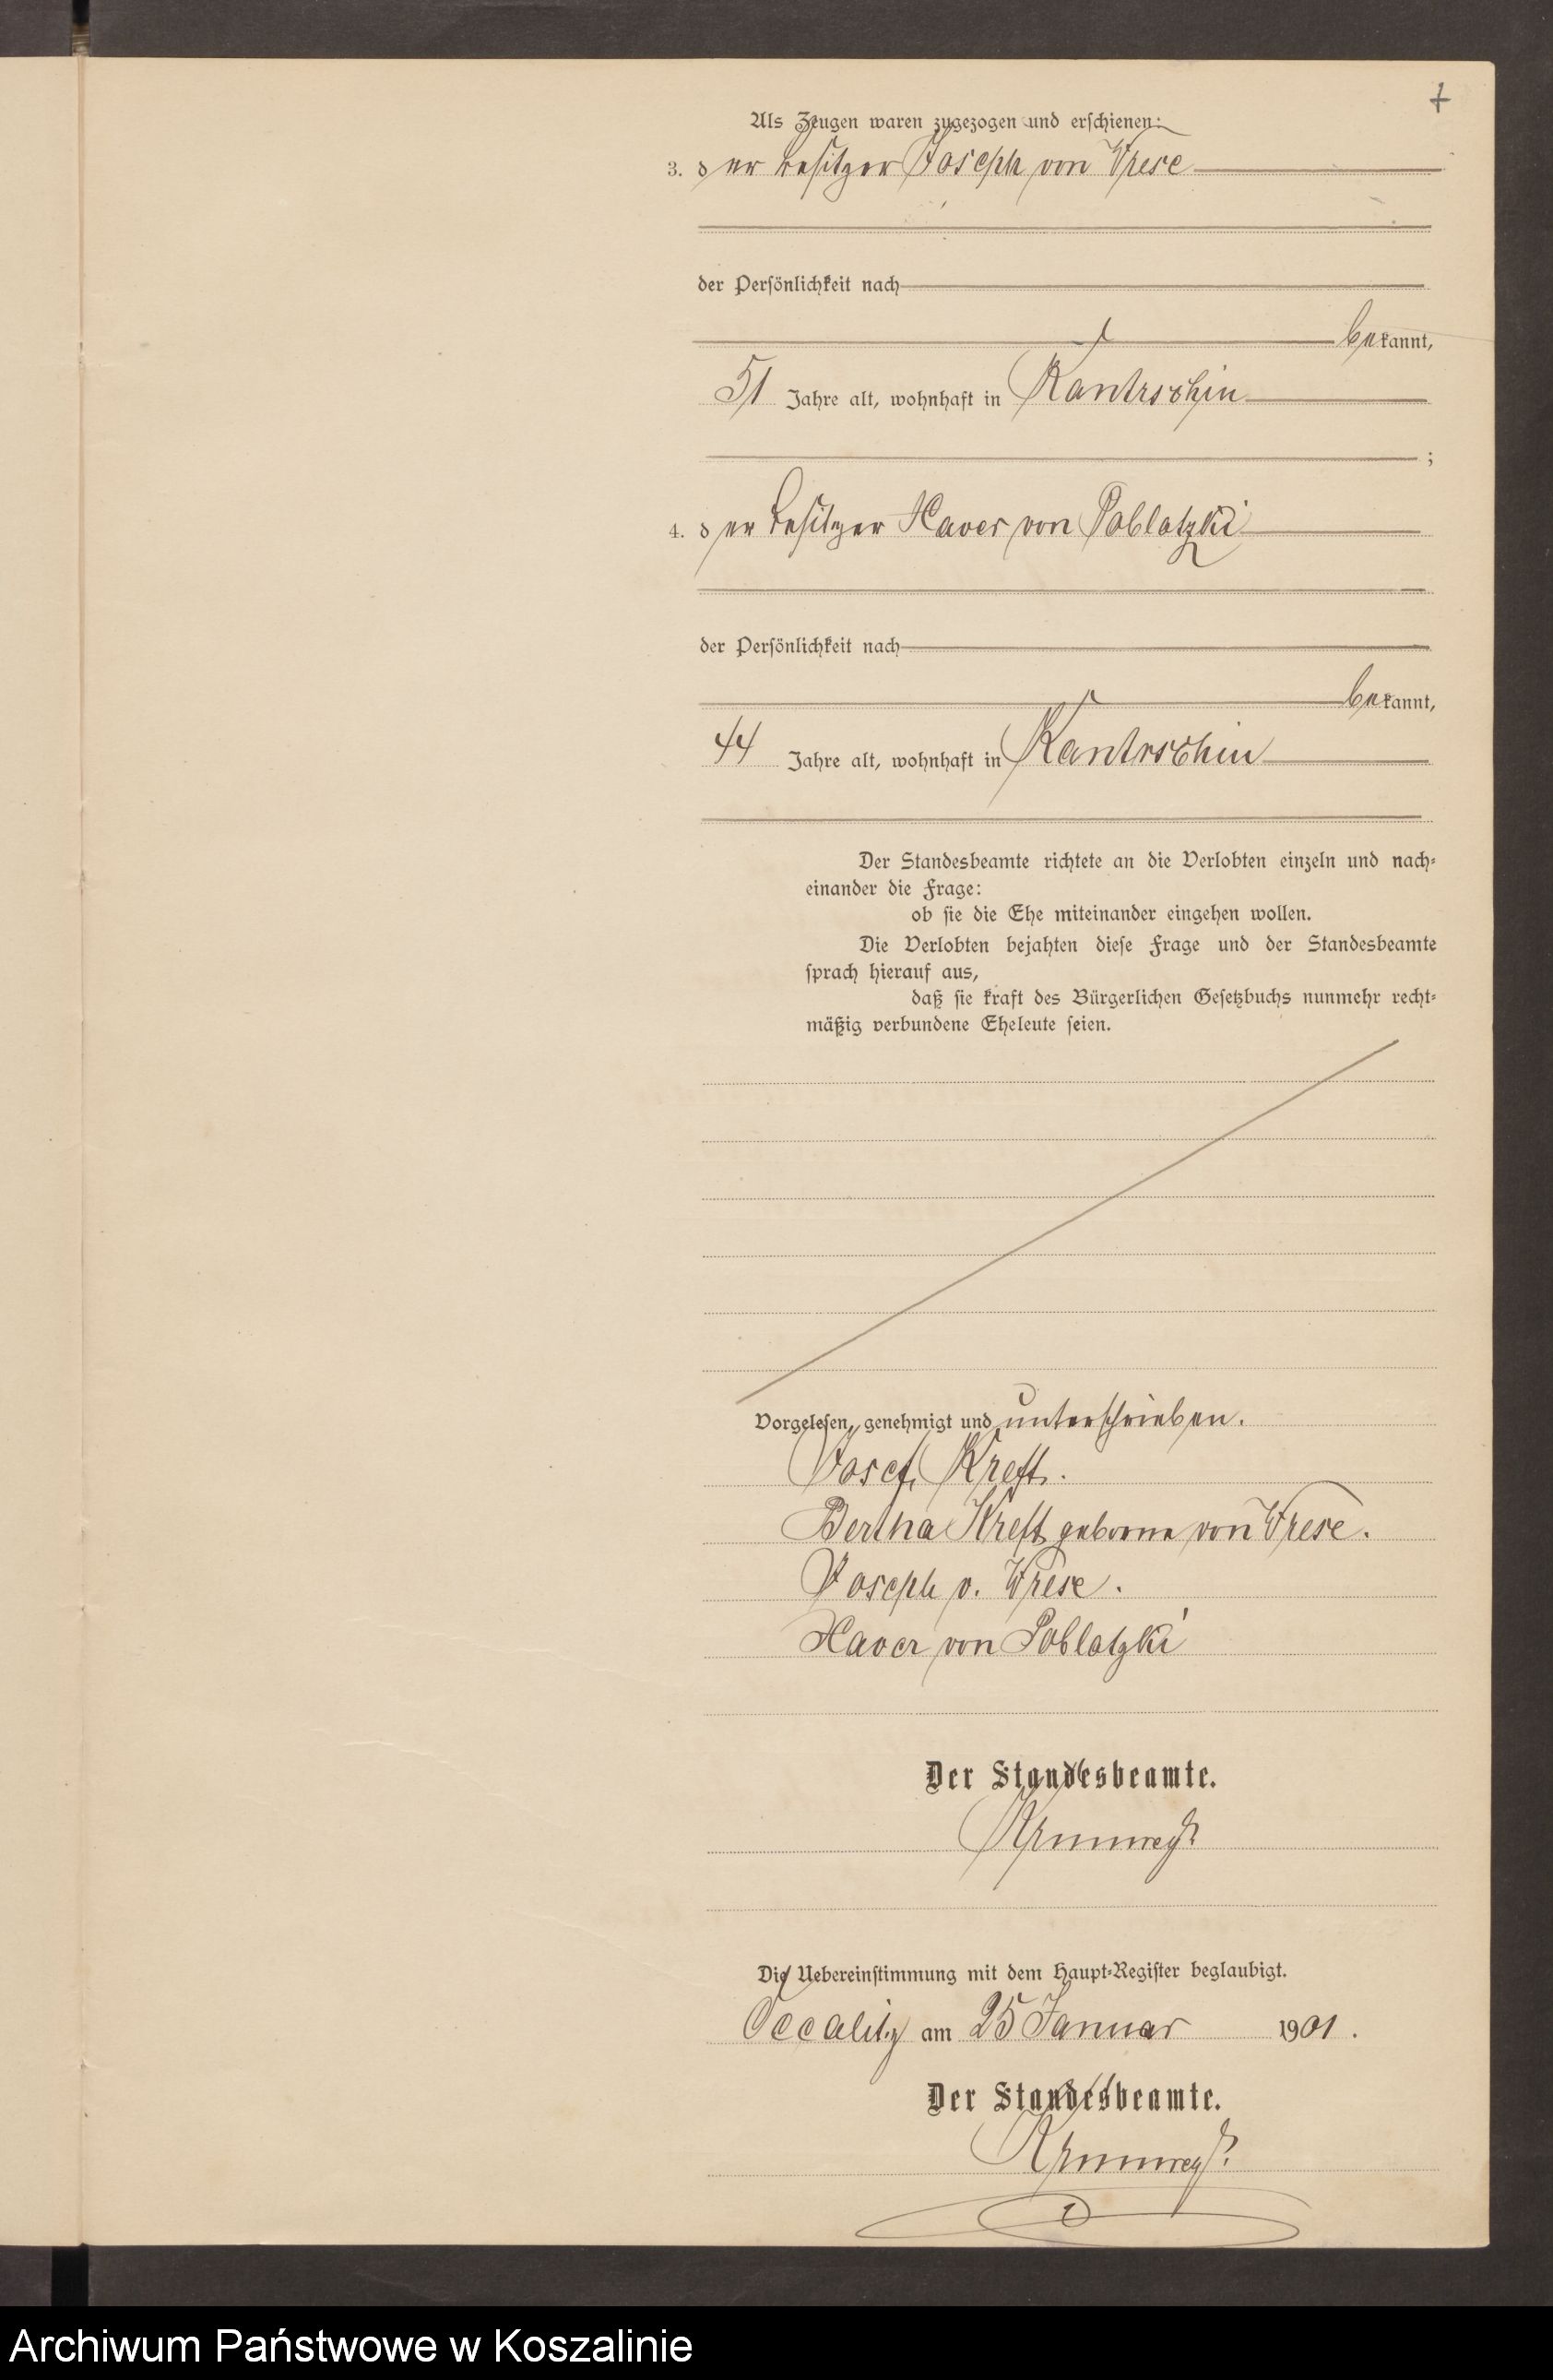 7
Als Zeugen waren zugezogen und erschienen:
3. der Besitzer Joseph von Wrese
der Persönlichkeit nach
bekannt,
51 Jahre alt, wohnhaft in Kantrschin
;
4. der Besitzer Xaver von Poblotzki
der Persönlichkeit nach
bekannt,
44 Jahre alt, wohnhaft in Kantrschin
Der Standesbeamte richtete an die Verlobten einzeln und nach-
einander die Frage:
ob sie die Ehe miteinander eingehen wollen.
Die Verlobten bejahten diese Frage und der Standesbeamte
sprach hierauf aus,
daß sie kraft des Bürgerlichen Gesetzbuchs nunmehr recht-
mäßig verbundene Eheleute seien.
Vorgelesen, genehmigt und unterschrieben.
Josef Kreft.
Bertha Kreft geborne von Wrese.
Joseph v. Wrese.
Xaver von Poblotzki
Der Standesbeamte.
Die Uebereinstimmung mit dem Haupt-Register beglaubigt.
Occalitz am 25 Januar 1901.
Der Standesbeamte.
Archiwum Państwowe w Koszalinie